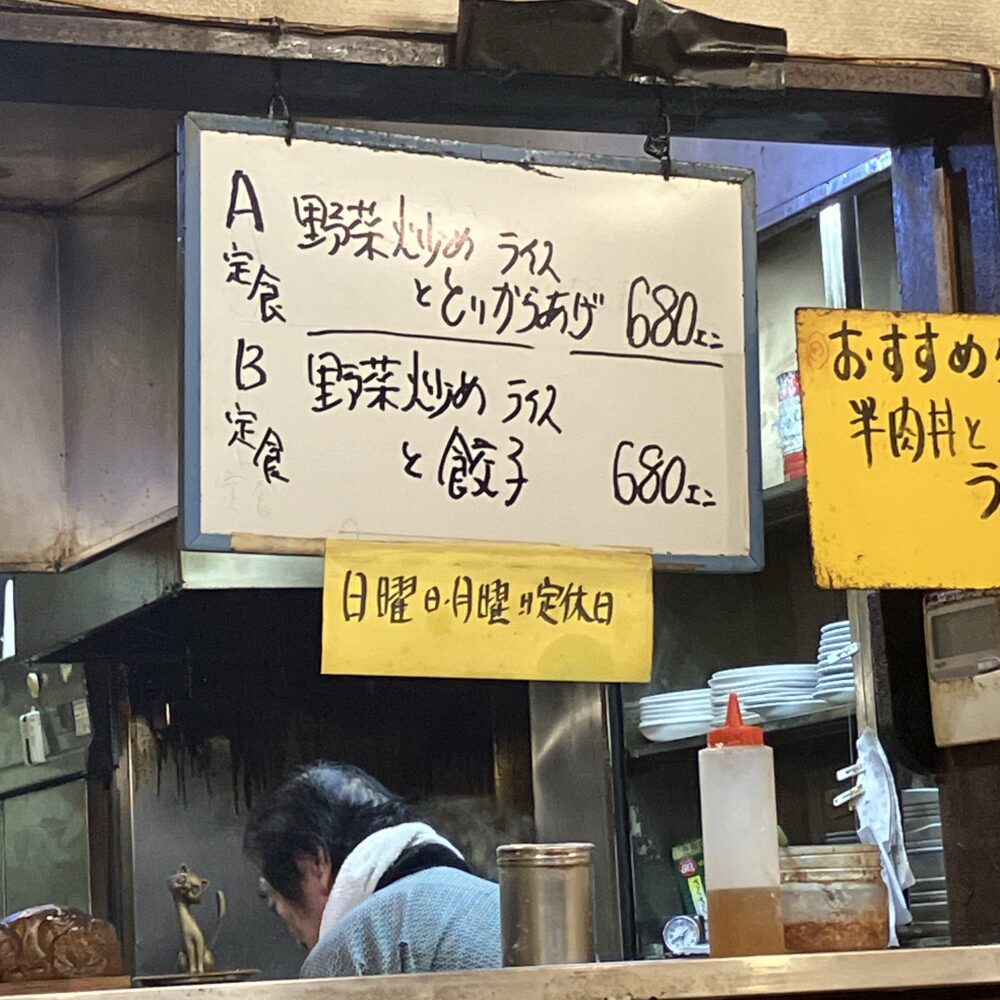 A定食 野菜炒め ライス
ととりからあげ 680エン
B定食 野菜炒め ライス
と餃子 680エン
日曜日・月曜日定休日
おすすめ
半肉丼と
ラ